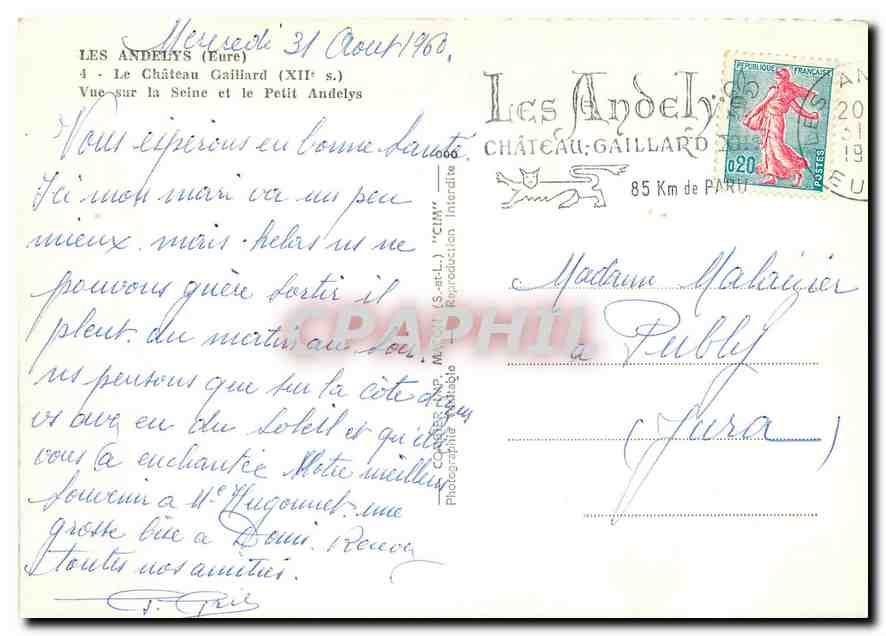 Mercredi 31 Aout 1960.
LES ANDELYS (Eure)
4 - Le Château Gaillard (XIIe s.)
Vue sur la Seine et le Petit Andelys
Vous espérons en bonne Santé.
Ici mon mari va un peu
mieux. mais. helas ns ne
pouvons guère sortir il
pleut. du matin au soir.
ns pensons que sur la côte d'azur
vs avez eu du soleil et qu'
vous a enchantée Notre meilleur
Souvenir a Me Hugonnet. une
grosse bise a Denis. Recevez
toutes nos amitiés.
COMBIER IMP. MACON (S.-et-L.) "CIM"
Photographie véritable — Reproduction Interdite
Les Andelys
CHÂTEAU-GAILLARD
85 Km de PARIS
REPUBLIQUE FRANÇAISE
0,20
POSTES
20
31
19
EU
Madame
a Publy
(Jura)
CPAPHIL